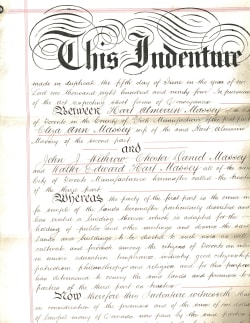 This Indenture
made in duplicate the fifth day of June in the year of our
Lord one thousand eight hundred and ninety four In pursuance
of the Act respecting short forms of Conveyances
Between Hart Almerrin Massey
of Toronto in the County of York Manufacturer of the first part
Eliza Ann Massey wife of the said Hart Almerrin
Massey of the second part
and
John J Withrow Chester Daniel Massey
and Walter Edward Hart Massey all of the said
City of Toronto Manufacturers hereinafter called the
of the third part
Whereas the party of the first part is the owner in
fee simple of the lands hereinafter particularly described and
has erected a building thereon which is adapted for the
holding of public and other meetings and desires the said
lands and buildings to be
and
in music education temperance industry good citizenship
patriotism philanthropy and religion and for this purpose
has determined to convey the said lands and premises to the
parties of the third part as trustees
Now therefore this Indenture witnesseth
in consideration of the premises and of the sum of one dollar
of lawful money of Canada now paid by the said parties